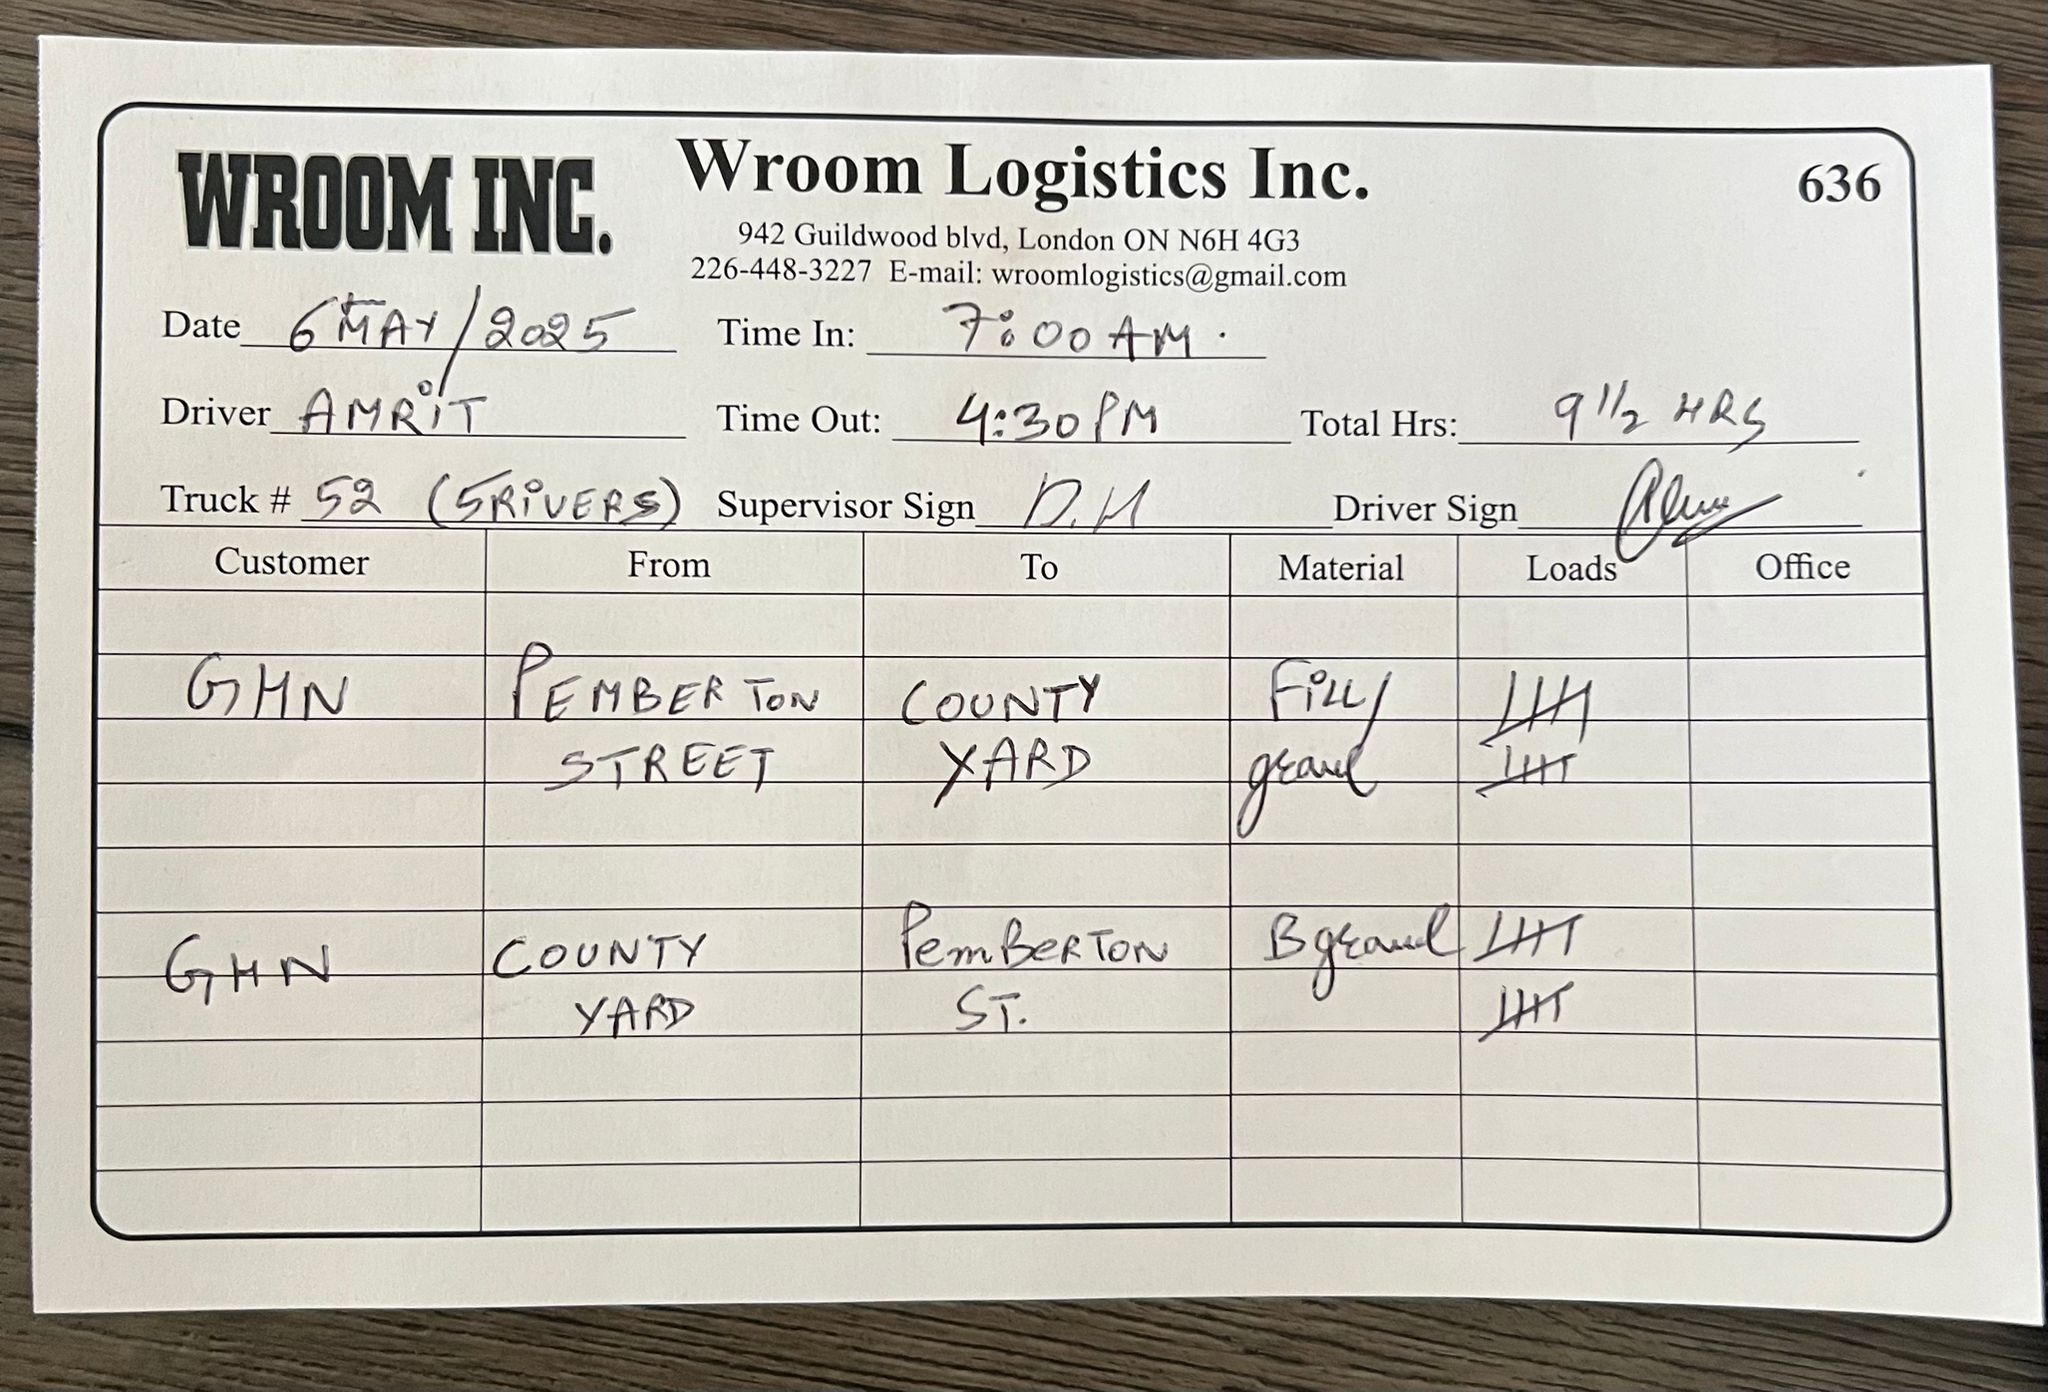 WROOM INC.
Wroom Logistics Inc.
636
942 Guildwood blvd, London ON N6H 4G3
226-448-3227 E-mail: wroomlogistics@gmail.com
Date 6TH MAY/2025 Time In: 7:00 AM.
Driver AMRIT Time Out: 4:30 PM Total Hrs: 9 1/2 HRS
Truck # 52 (5RIVERS) Supervisor Sign D.H Driver Sign
Customer From To Material Loads Office
GHN PEMBERTON COUNTY Fill/ 
STREET YARD gravel
GHN COUNTY PemBERTON B gravel
YARD ST.